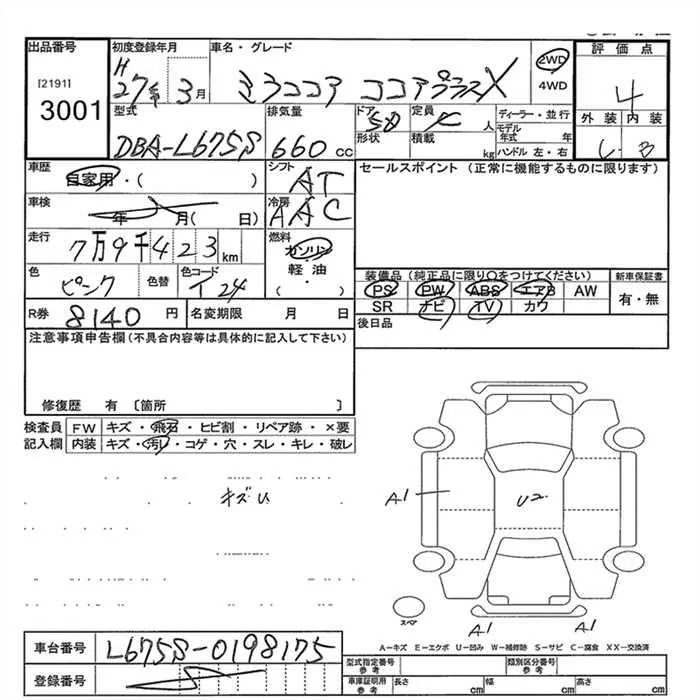 出品番号 初度登録年月 車名・グレード 評価点
[2191] 3001
H27年 3月 ミラココア ココアプラスX 2WD 4WD 4
型式 排気量 ドア 定員 ディーラー・並行 外装 内装
DBA-L675S 660cc 5D 人 モデル年式 年 B
形状 積載 kg ハンドル 左・右
車歴 シフト セールスポイント (正常に機能するものに限ります)
自家用・( ) AT
車検 冷房
年 月( 日) AAC
走行 燃料
7万9千423km ガソリン
軽油
( )
色 色替 色コード 装備品(純正品に限り○をつけてください) 新車保証書
ピンク T24 PS PW ABS エアB AW 有・無
SR ナビ TV カワ
R券 8140円 名変期限 月 日 後日品
注意事項申告欄(不具合内容等は具体的に記入して下さい)
修復歴 有 〔箇所 〕
検査員 FW キズ・飛石・ヒビ割・リペア跡・×要
記入欄 内装 キズ・汚れ・コゲ・穴・スレ・キレ・破レ
キズU
A1 U2 A1
スペア
A1 A1
A-キズ E-エクボ U-凹み W-補修跡 S-サビ C-腐食 XX-交換済
車台番号 L675S-0198175
登録番号
型式指定番号 参考 類別区分番号 参考
車庫証明用 参考 長さ cm 幅 cm 高さ cm